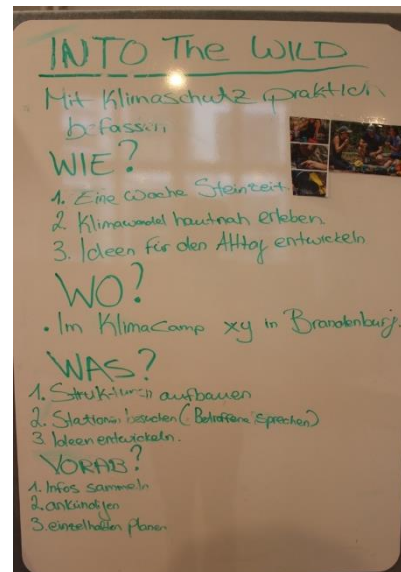 INTO The WILD
Mit Klimaschutz praktich
b-fassen
WIE?
1. Eine Woche Steinzeit
2. Klimawandel hautnah erleben.
3. Ideen für den Alltag entwickeln
WO?
• Im KlimaCamp xy in Brandenburg.
WAS?
1. Strukturen aufbauen
2. Stationen besuchen (Betroffene sprechen)
3. Ideen entwickeln.
VORAB?
1. Infos sammeln
2. ankündigen
3. einzelheiten Planen